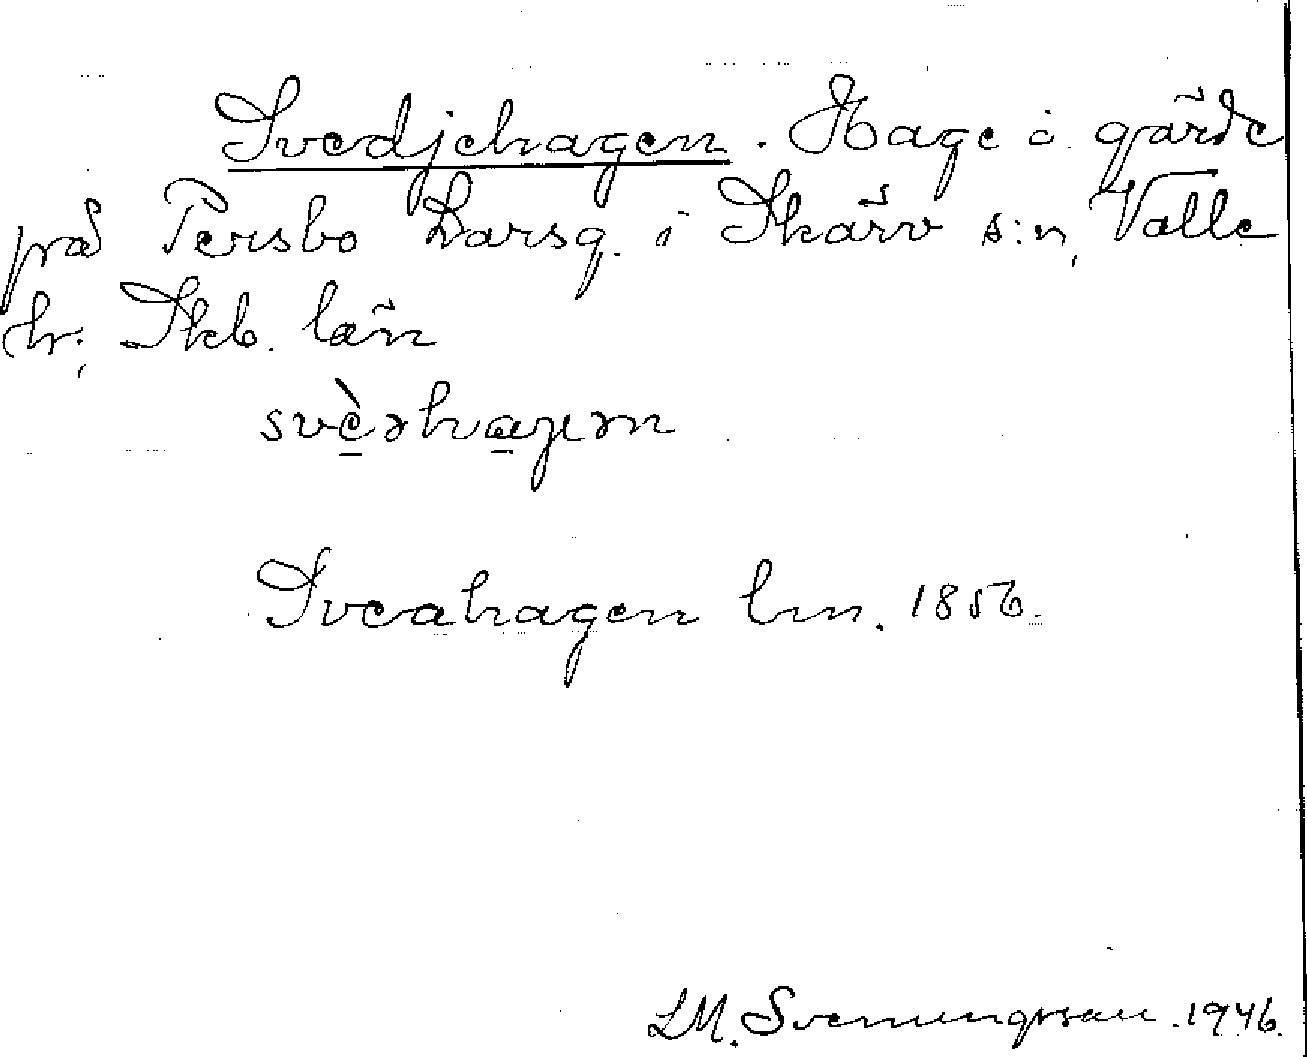 Svedjehagen. Hage o. gärde
på Persbo Larsg. i Skärv s:n, Valle
hr; Skb. län
svèəhaɡən
Sveahagen lm. 1856.
LM. Svenungsson. 1946.